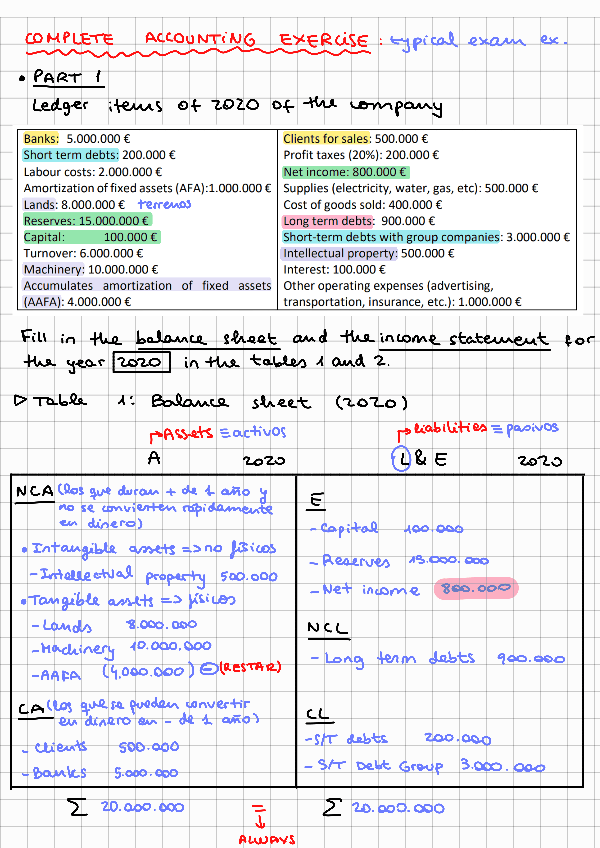 COMPLETE ACCOUNTING EXERCISE: typical exam ex.
• PART 1
Ledger items of 2020 of the company
Banks: 5.000.000 €
Short term debts: 200.000 €
Labour costs: 2.000.000 €
Amortization of fixed assets (AFA):1.000.000 €
Lands: 8.000.000 € terrenos
Reserves: 15.000.000 €
Capital: 100.000 €
Turnover: 6.000.000 €
Machinery: 10.000.000 €
Accumulates amortization of fixed assets
(AAFA): 4.000.000 €
Clients for sales: 500.000 €
Profit taxes (20%): 200.000 €
Net income: 800.000 €
Supplies (electricity, water, gas, etc): 500.000 €
Cost of goods sold: 400.000 €
Long term debts: 900.000 €
Short-term debts with group companies: 3.000.000 €
Intellectual property: 500.000 €
Interest: 100.000 €
Other operating expenses (advertising,
transportation, insurance, etc.): 1.000.000 €
Fill in the balance sheet and the income statement for
the year 2020 in the tables 1 and 2.
▷ Table 1: Balance sheet (2020)
Assets ≡ activos
A 2020
NCA (los que duran + de 1 año y
no se convierten rápidamente
en dinero)
• Intangible assets => no físicos
- Intellectual property 500.000
• Tangible assets => físicos
- Lands 8.000.000
- Machinery 10.000.000
- AAFA (4.000.000) ⊖ (RESTAR)
CA (los que se pueden convertir
en dinero en - de 1 año)
- Clients 500.000
- Banks 5.000.000
Σ 20.000.000
liabilities ≡ pasivos
L & E 2020
E
- Capital 100.000
- Reserves 15.000.000
- Net income 800.000
NCL
- Long term debts 900.000
CL
- S/T debts 200.000
- S/T Debt Group 3.000.000
Σ 20.000.000
=
ALWAYS